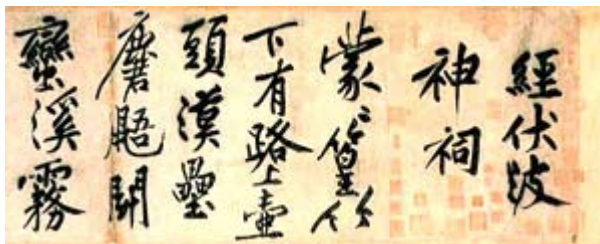 經伏波
神祠
蒙〻篁竹
下有路上壺
頭漢壘
麏䴥閒
蠻溪霧